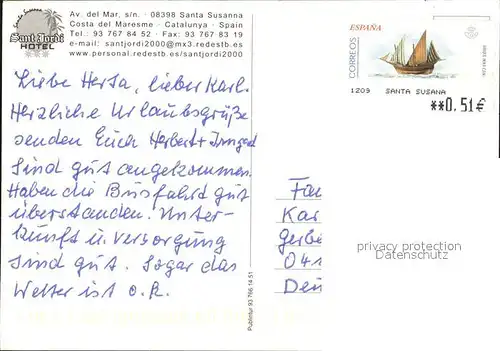 Santa Susana
Sant Jordi
HOTEL
Av. del Mar, s/n. · 08398 Santa Susanna
Costa del Maresme - Catalunya - Spain
Tel.: 93 767 84 52 - Fax: 93 767 83 19
e-mail: santjordi2000@mx3.redestb.es
www.personal.redestb.es/santjordi2000
ESPAÑA
CORREOS
1209 SANTA SUSANA
**0.51€
Liebe Herta, lieber Karl.
Herzliche Urlaubsgrüße
senden Euch Herbert + Irmgard
Sind gut angekommen.
Haben die Busfahrt gut
überstanden. Unter-
kunft u. Versorgung
sind gut. Sogar das
Wetter ist o.k.
Publintur 93 766 14 51
Fam
Kar
Gerbe
041
Deu
privacy protection
Datenschutz